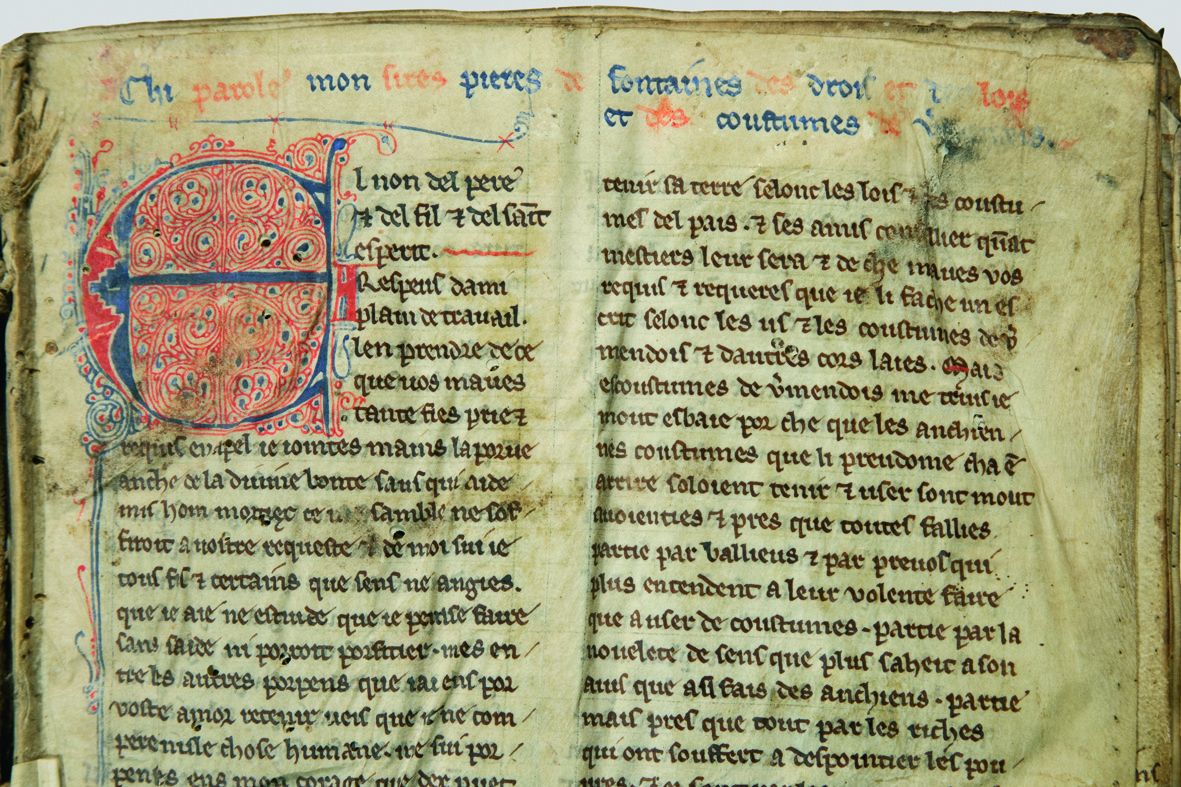 Chi parole mon sires pieres de fontaines des drois et des lois
et des coustumes de
El non del pere
⁊ del fil ⁊ del saīt
esperit.
A Respeus dami
plain de travail.
Jl en prendre de ce
que vos maves
tante fies prie ⁊
requis en apel ie iointes mains la porve
anche de la divine bonte sans qui aide
nus hom morteex ce samble ne sof
firoit a nostre requeste ⁊ de moi sui ie
tous fis ⁊ certains que sens ne angies.
que ie aie ne estuide que ie peuise faire
sans saide ni porroit porfitier. mes en
tre les autres porpens que iai ens por
vostre amor retenir veis que ie ne com
pere nisle chose humaine. ne sui por
pentes ens mon corage que der puet
tenir sa terre selonc les lois ⁊ les coustu
mes del pais. ⁊ ses amis consillier qūat
mestiers leur sera ⁊ de che maves vos
requis ⁊ requeres que ie li fache un es
crit selonc les us ⁊ les coustumes de v̄
mendois ⁊ dautres cors laies. Mais
es coustumes de v̄mendois me truis ie
mout esbaie por che que les anchien
nes coustumes que li preudome cha ē
arrire soloient tenir ⁊ user sont mout
anoienties ⁊ pres que toutes fallies
partie par baillieus ⁊ par prevos qui
plus entendent a leur volente faire
que a user de coustumes. partie par la
novelete de sens que plus saheit a son
avis que as fais des anchiens. partie
mais pres que tout par les riches
qui ont souffert a despointier les pou